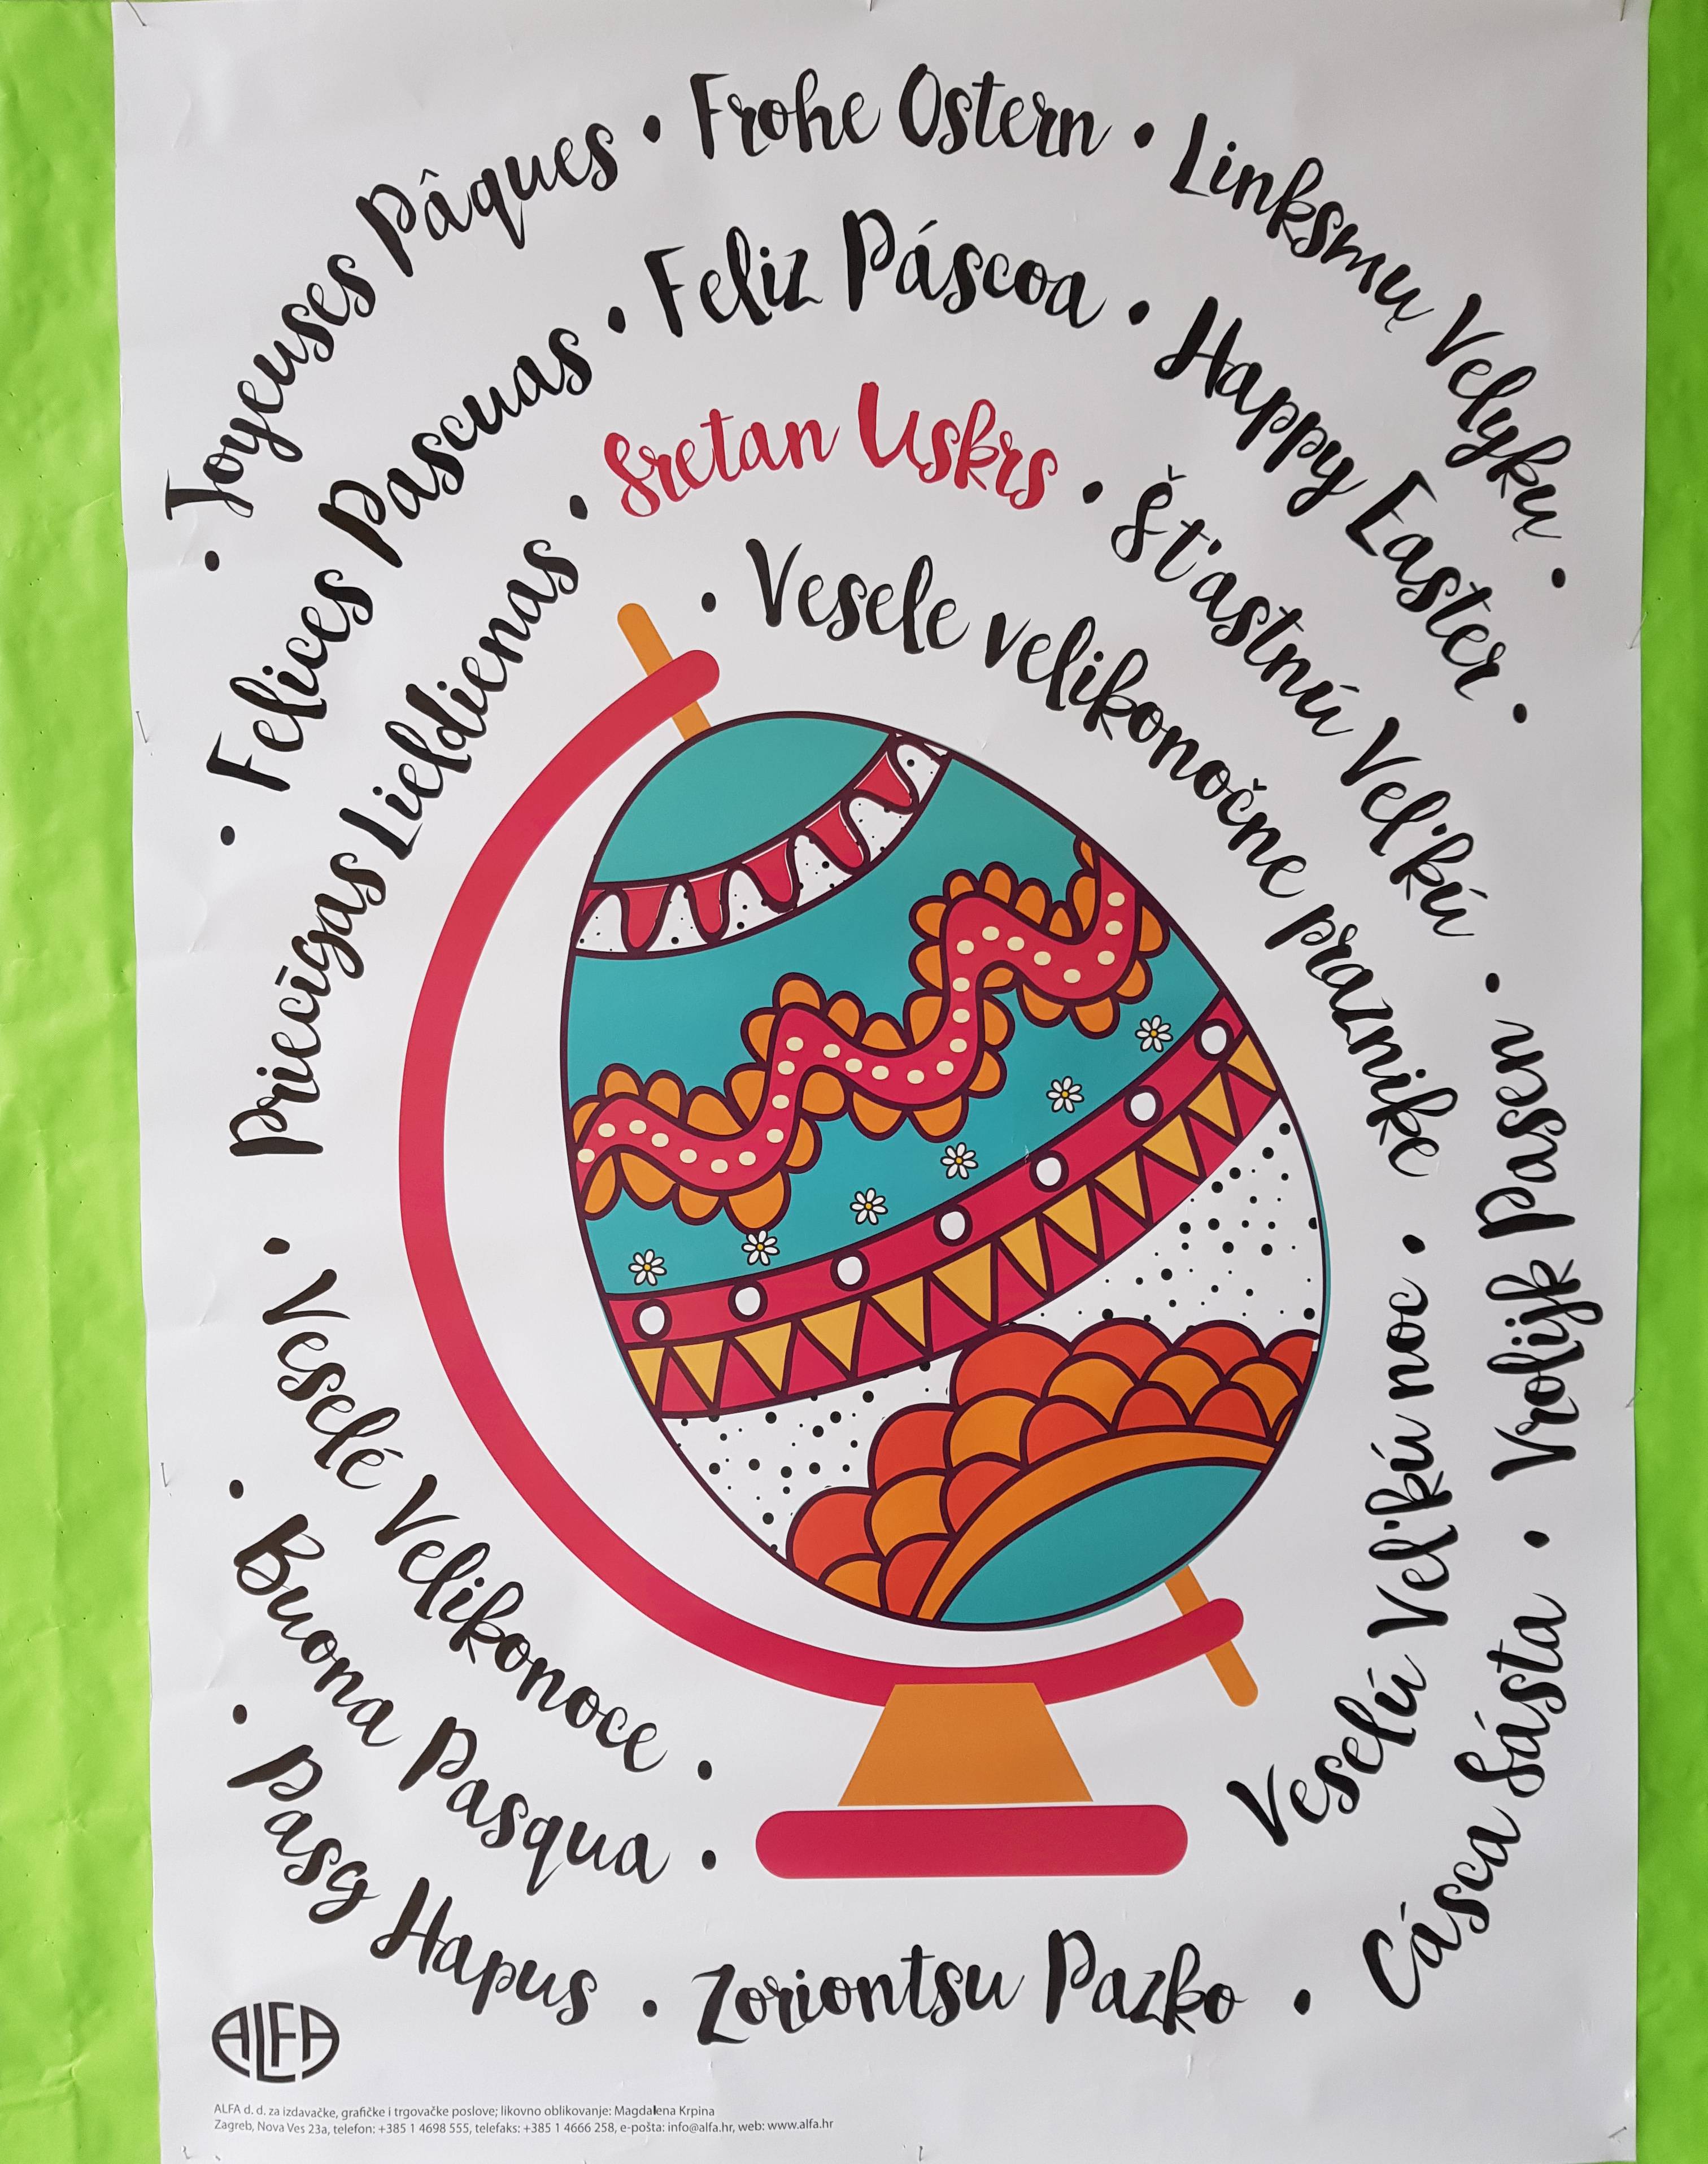 • Joyeuses Pâques • Frohe Ostern • Linksmų Velykų •
• Felices Pascuas • Feliz Páscoa • Happy Easter •
Priecīgas Lieldienas • Sretan Uskrs • Šťastnú Veľkú
• Vesele velikonočne praznike •
• Vrolijk Pasen
Veselú Veľkú noc
• Veselé Velikonoce •
• Buona Pasqua •
• Pasg Hapus • Zoriontsu Pazko • Cásca Sásta •
ALFA
ALFA d. d. za izdavačke, grafičke i trgovačke poslove; likovno oblikovanje: Magdalena Krpina
Zagreb, Nova Ves 23a, telefon: +385 1 4698 555, telefaks: +385 1 4666 258, e-pošta: info@alfa.hr, web: www.alfa.hr